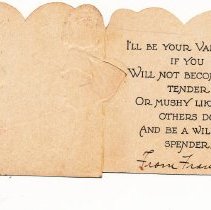 I'LL BE YOUR VA
IF YOU
WILL NOT BECO
TENDER
OR MUSHY LIK
OTHERS DO
AND BE A WIL
SPENDER.
From Fran